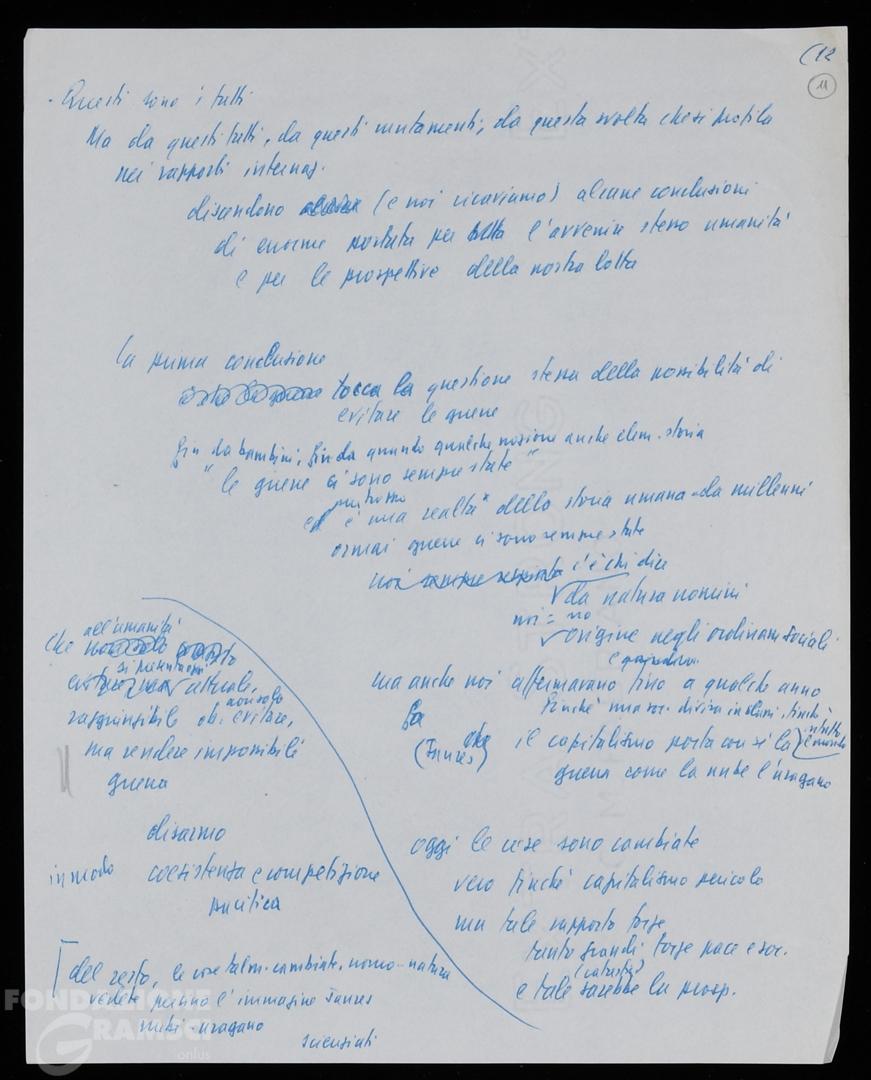 (12
11
- Questi sono i fatti
Ma da questi fatti, da questi mutamenti, da questa svolta che si profila
nei rapporti internaz.
discendono (e noi ricaviamo) alcune conclusioni
di enorme portata per l'avvenire stesso umanità
e per le prospettive della nostra lotta
la prima conclusione
tocca la questione stessa della possibilità di
evitare le guerre
fin da bambini, fin da quando qualche nozione anche elem. storia
"le guerre ci sono sempre state"
purtroppo
è una realtà della storia umana da millenni
ormai guerre ci sono sempre state
noi c'è chi dice
da natura uomini
noi = no
origine negli ordinam. sociali
ma anche noi affermavamo fino a qualche anno
fa finché una soc. divisa in classi, finché
(Jaurès) che il capitalismo porta con sé la
guerra come la nube l'uragano
oggi le cose sono cambiate
vero finché capitalismo pericolo
ma tale rapporto forze
tanto grandi forze pace e soc.
(catastrofe)
e tale sarebbe la prosp.
all'umanità
che
si presenta oggi
attuale,
raggiungibile di non solo evitare,
ma rendere impossibile
guerra
disarmo
in modo coesistenza e competizione
pacifica
del resto, le cose talm. cambiate, uomo-natura
vedete perfino l'immagine Jaurès
nubi-uragano
scienziati
FONDAZIONE
GRAMSCI
onlus